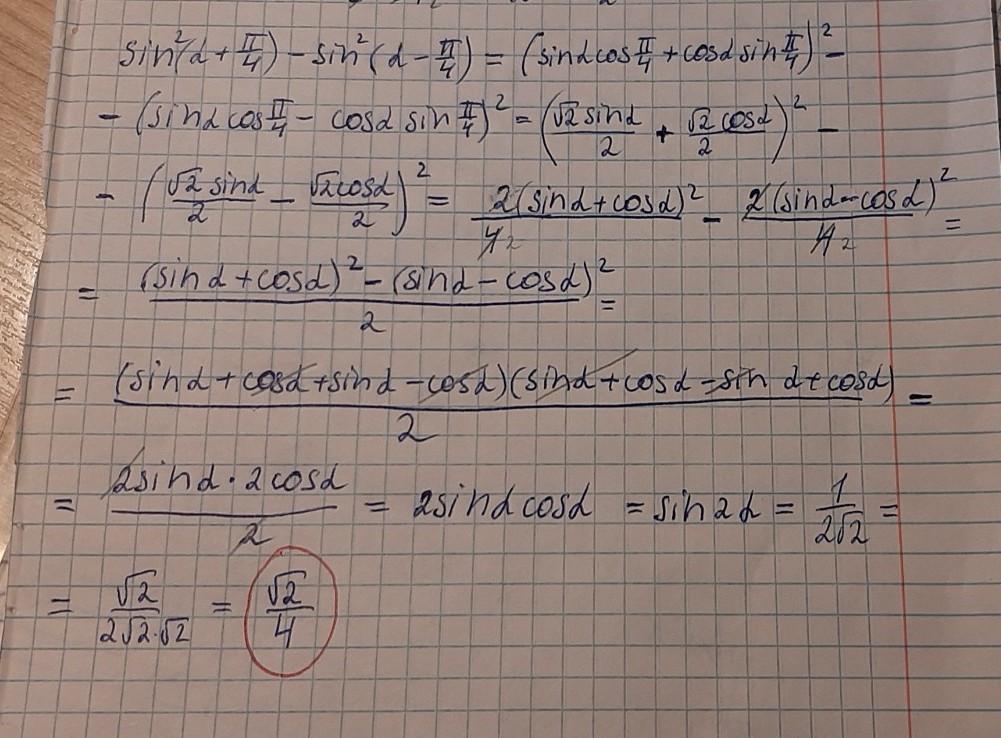 sin²(α + π/4) − sin²(α − π/4) = (sinα cos π/4 + cosα sin π/4)² −
− (sinα cos π/4 − cosα sin π/4)² = (√2 sinα/2 + √2 cosα/2)² −
− (√2 sinα/2 − √2 cosα/2)² = 2(sinα + cosα)²/4 2 − 2(sinα − cosα)²/4 2 =
= ((sinα + cosα)² − (sinα − cosα)²)/2 =
= (sinα + cosα + sinα − cosα)(sinα + cosα − sin α + cosα)/2 =
= 2sinα · 2cosα/2 = 2sinα cosα = sin2α = 1/2√2 =
= √2/2√2·√2 = √2/4